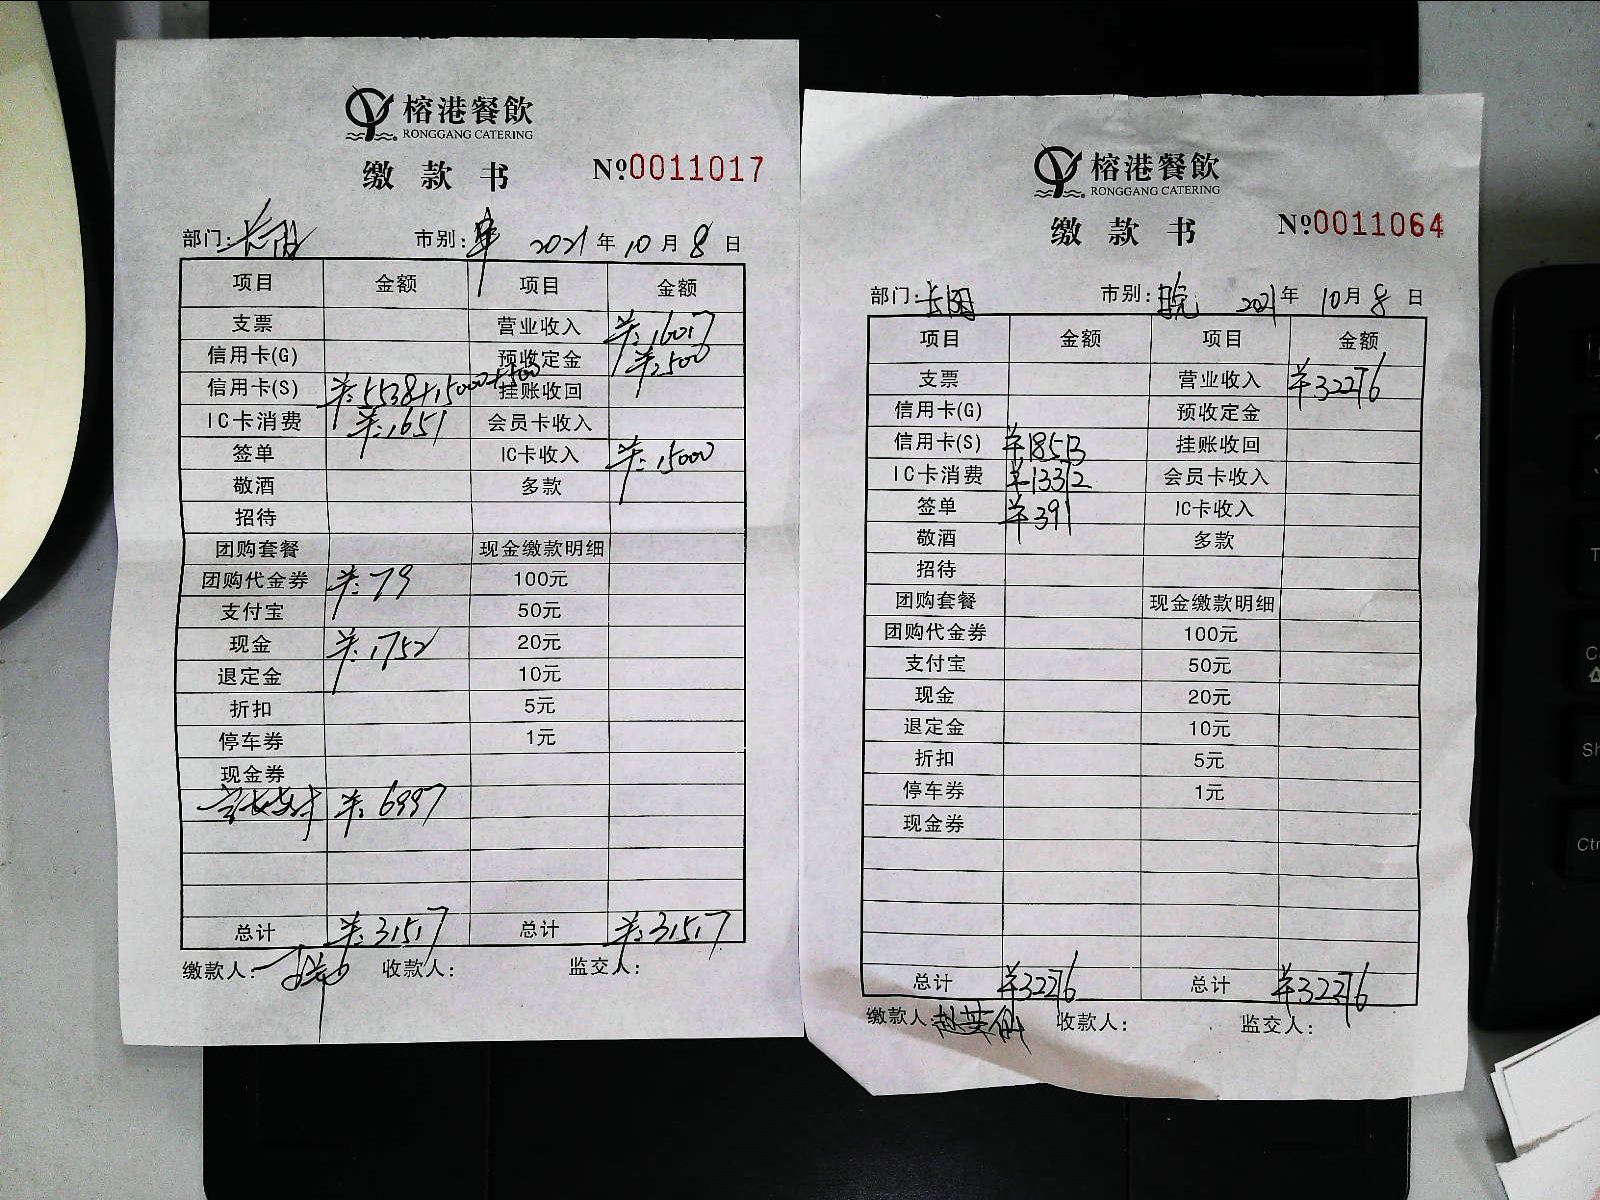 榕港餐飲
RONGGANG CATERING
缴款书 №0011017
部门: 市别: 2021年10月8日
项目 金额 项目 金额
支票 营业收入 ¥:16017
信用卡(G) 预收定金 ¥:500
信用卡(S) ¥:5538+15000+500 挂账收回
IC卡消费 ¥:1651 会员卡收入
签单 IC卡收入 ¥:15000
敬酒 多款
招待
团购套餐 现金缴款明细
团购代金券 ¥:79 100元
支付宝 50元
现金 ¥:1752 20元
退定金 10元
折扣 5元
停车券 1元
现金券
¥:6997
总计 ¥:31517 总计 ¥:31517
缴款人: 收款人: 监交人:
榕港餐飲
RONGGANG CATERING
缴款书 №0011064
部门:长阳 市别:晚 2021年10月8日
项目 金额 项目 金额
支票 营业收入 ¥32276
信用卡(G) 预收定金
信用卡(S) ¥18513 挂账收回
IC卡消费 ¥13312 会员卡收入
签单 ¥391 IC卡收入
敬酒 多款
招待
团购套餐 现金缴款明细
团购代金券 100元
支付宝 50元
现金 20元
退定金 10元
折扣 5元
停车券 1元
现金券
总计 ¥32276 总计 ¥32276
缴款人: 收款人: 监交人: